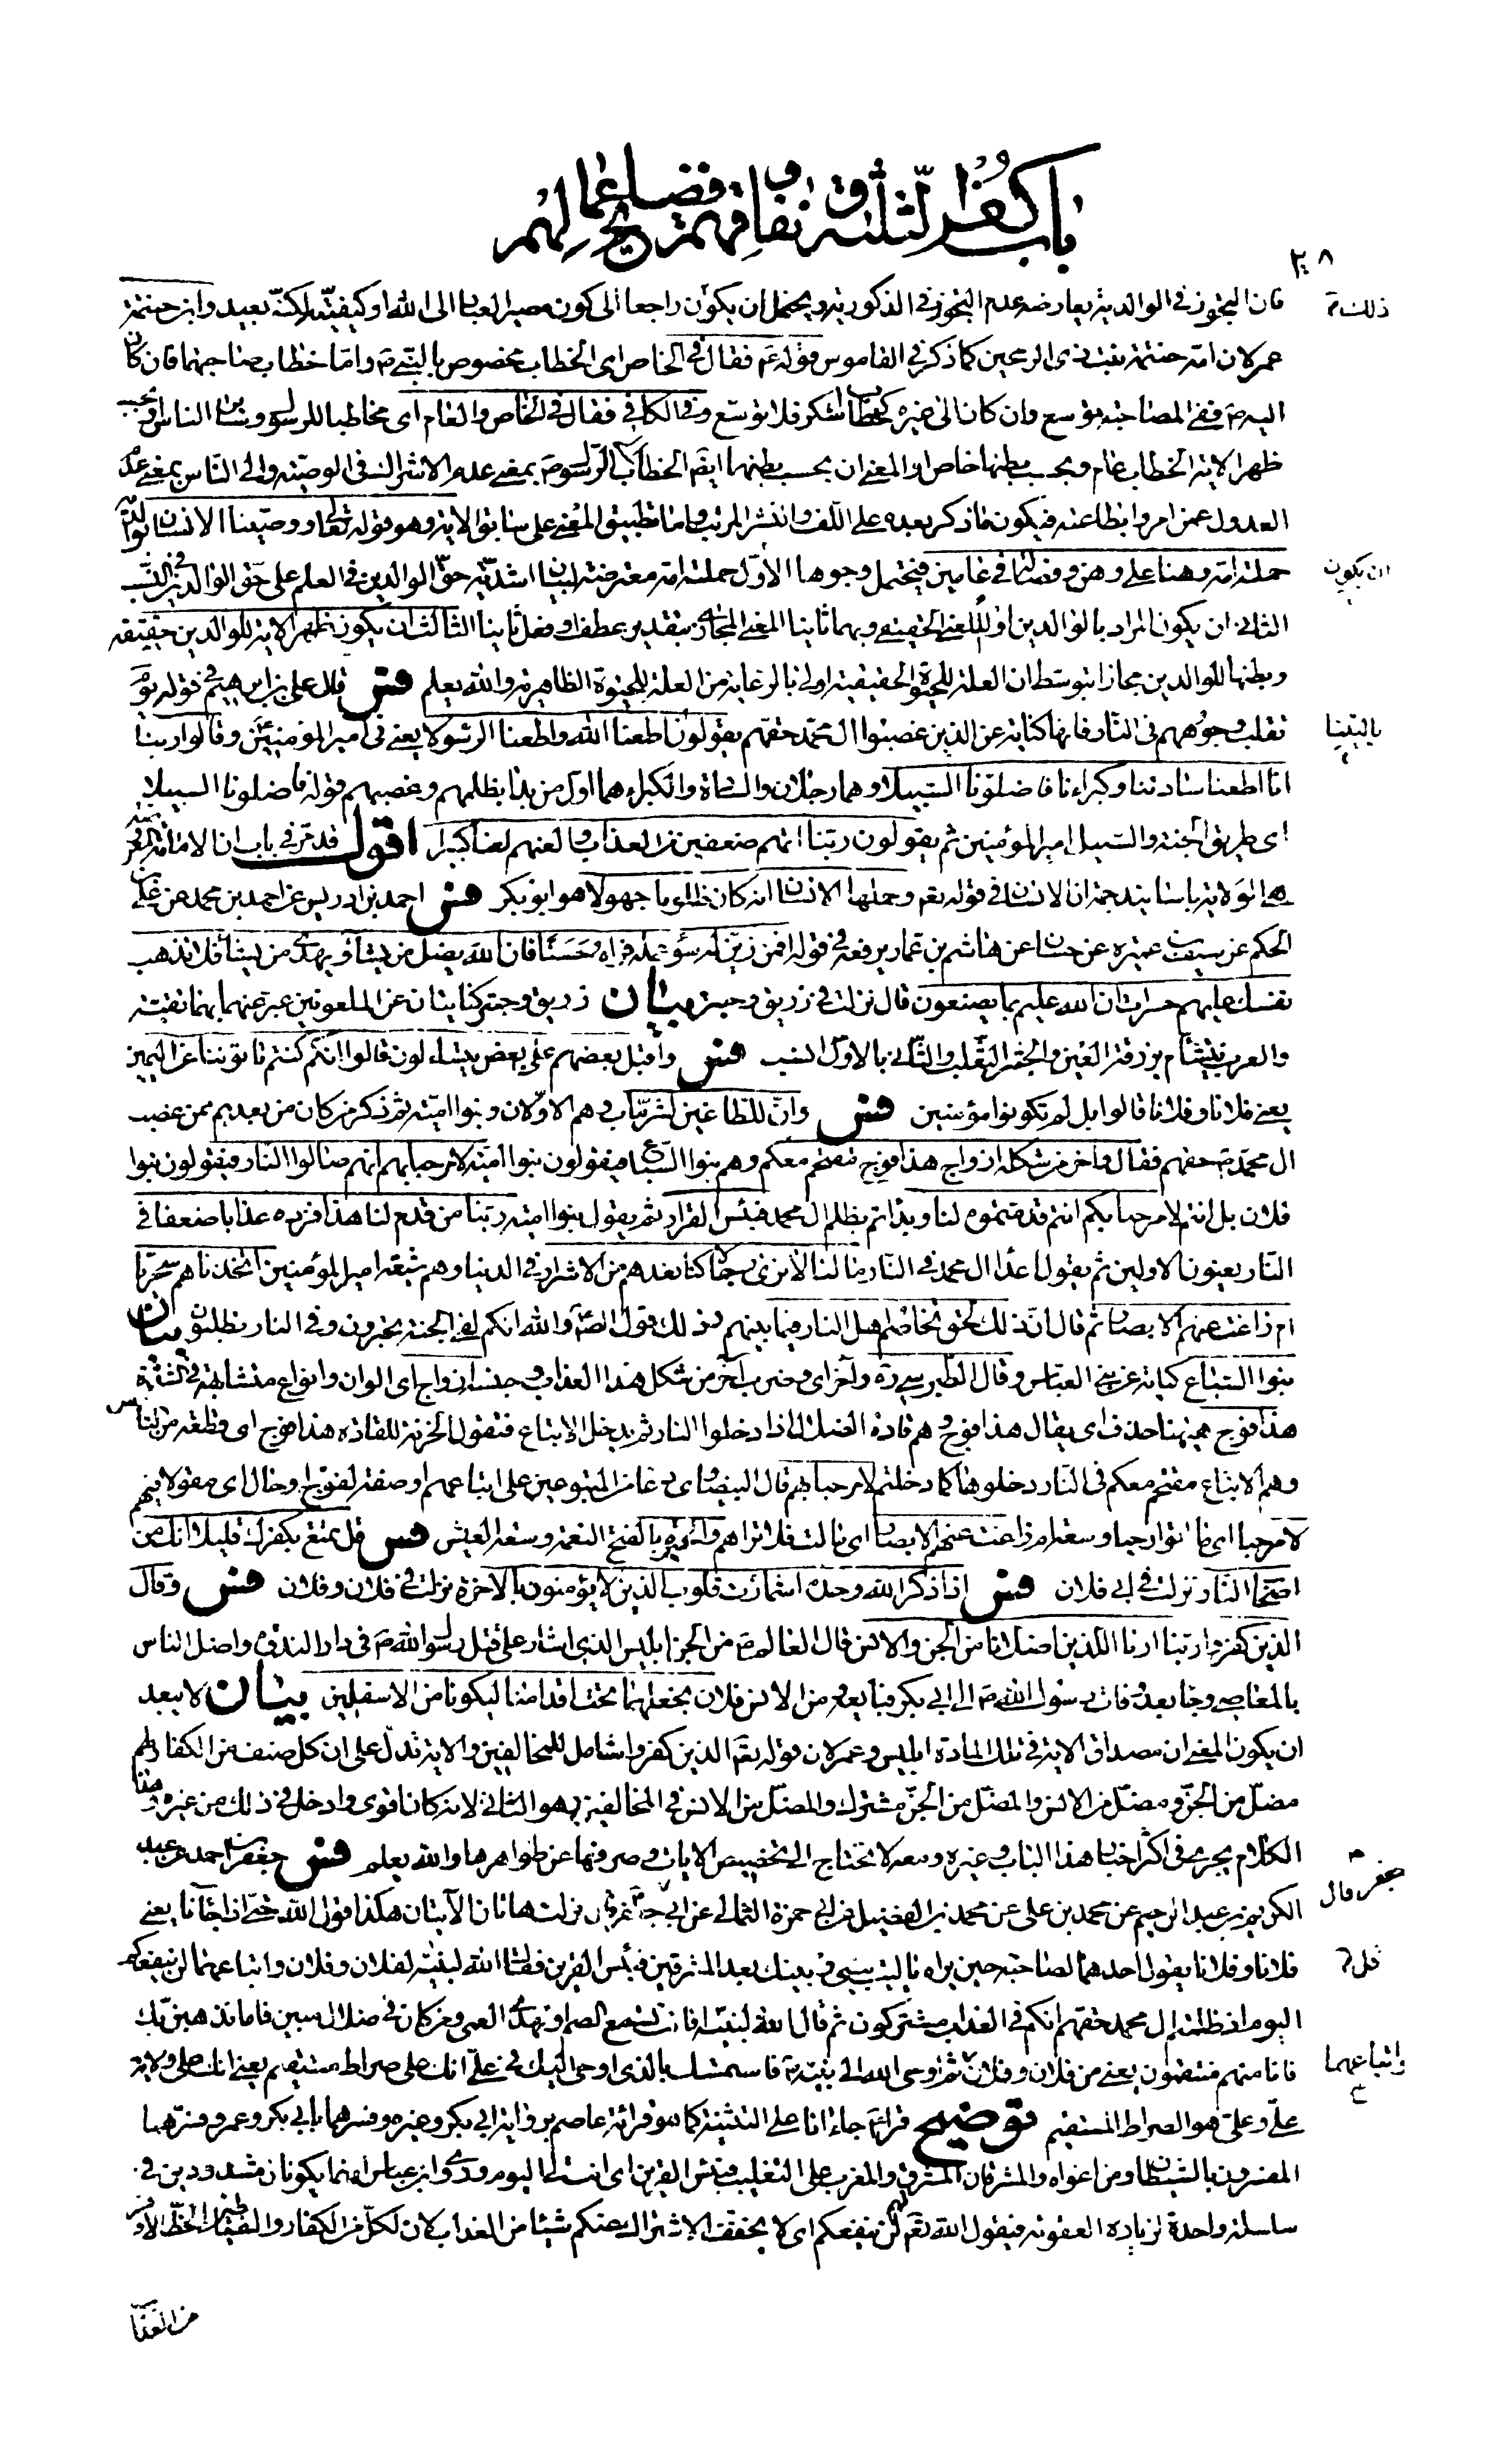 باب كفر الثلثة و نفاقهم و فضايح اعمالهم
٢٠٨
فان التجوز في الوالدين يعارضه عدم التجوز في الذكورية ويحتمل ان يكون راجعا الى كون مصير العباد الى الله او كيفيته لكنه بعيد وابن حنتمة
ذلك
عمر لان امه حنتمة بنت ذي الرمحين كما ذكر في القاموس قوله ع فقال في الخاص اى الخطاب مخصوص بالنبي ص واما خطاب صاحبهما فان كان
اليه ص ففي المصاحبة توسع وان كان الى غيره كخطاب اشكر فلا توسع وفي الكافي فقال في الخاص والعام اى مخاطبا للرسول وساير الناس وبحسب
ظهر الاية الخطاب عام وبحسب بطنها خاص او المعنى ان بحسب بطنها ايضا الخطاب الى الرسول ص بمعنى عدم الاشراك في الوصية والى الناس بمعنى عدم
العدول عمن امروا بطاعته فيكون ما ذكر بعده على اللف والنشر المرتب واما تطبيق المعنى على سابق الاية وهو قوله تعالى ووصينا الانسان بوالديه
حملته امه وهنا على وهن وفصاله في عامين فيحتمل وجوها الاول حملته امه معترضة لبيان اشدية حق الوالدين في العلم على حق الوالدين في النسب
ان يكون
الثاني ان يكون المراد بالوالدين اولا المعنى الحقيقي وبهما ثانيا المعنى المجازي بتقدير عطف او فعل ثانيا الثالث ان يكون ظهر الاية للوالدين حقيقة
وبطنها للوالدين مجازا بتوسط ان العلة للحيوة الحقيقية اولى بالرعاية من العلة للحيوة الظاهرية والله يعلم فس قال علي بن ابرهيم في قوله يوم
تقلب وجوههم في النار فانها كناية عن الذين غصبوا ال محمد حقهم يقولون يا ليتنا اطعنا الله واطعنا الرسولا يعني في امير المؤمنين وقالوا ربنا
يا ليتنا
انا اطعنا سادتنا وكبراءنا فاضلونا السبيلا وهما رجلان والسادة والكبراء هما اول من بدا بظلمهم وغصبهم قوله فاضلونا السبيلا
اى طريق الجنة والسبيل امير المؤمنين ثم يقولون ربنا اتهم ضعفين من العذاب والعنهم لعنا كبيرا اقول قد مر في باب ان الامانة
هي الولاية باسانيد جمة ان الانسان في قوله تعالى وحملها الانسان انه كان ظلوما جهولا هو ابو بكر فس احمد بن ادريس عن احمد بن محمد عن علي بن
الحكم عن سيف بن عميرة عن حسان عن هاشم بن عمار يرفعه في قوله افمن زين له سوء عمله فراه حسنا فان الله يضل من يشاء ويهدي من يشاء فلا تذهب
نفسك عليهم حسرات ان الله عليم بما يصنعون قال نزلت في زريق وحبتر بيان زريق وحبتر كنايتان عن الملعونين عبر عنهما بهما تقية
والعرب تتشأم بزرقة العين والحبتر الثعلب والثاني بالاول انسب فس واقبل بعضهم على بعض يتساءلون قالوا انكم كنتم تاتوننا عن اليمين
يعني فلانا وفلانا قالوا بل لم تكونوا مؤمنين فس وان للطاغين لشر مآب هم الاولان وبنوا امية ثم ذكر من كان من بعدهم ممن غصب
ال محمد حقهم فقال واخر من شكله ازواج هذا فوج مقتحم معكم وهم بنوا السباع فيقولون بنوا امية لا مرحبا بهم انهم صالوا النار فيقولون بنوا
فلان بل انتم لا مرحبا بكم انتم قدمتموه لنا وبدأتم بظلم ال محمد فبئس القرار ثم يقول بنوا امية ربنا من قدم لنا هذا فزده عذابا ضعفا في
النار يعنون الاولين ثم يقول اعداء ال محمد في النار ما لنا لا نرى رجالا كنا نعدهم من الاشرار في الدنيا وهم شيعة امير المؤمنين اتخذناهم سخريا
ام زاغت عنهم الابصار ثم قال ان ذلك لحق تخاصم اهل النار فيما بينهم وذلك قول الصادق والله انكم لفي الجنة تحبرون وفي النار تطلبون بيان
بنوا السباع كناية عن بني العباس وقال الطبرسي ره واخر اى وضروب اخر من شكل هذا العذاب وجنسه ازواج اى الوان وانواع متشابهة في الشدة
هذا فوج هيهنا حذف اى يقال هذا فوج وهم قادة الضلال اذا دخلوا النار ثم يدخل الاتباع فتقول الخزنة للقادة هذا فوج اى قطعة من الناس
وهم الاتباع مقتحم معكم في النار دخلوها كما دخلتم لا مرحبا بهم قال البيضاوى دعاء من المتبوعين على اتباعهم او صفة لفوج او حال اى مقولا فيهم
لا مرحبا اى ما اتوا رحبا وسعة ام زاغت عنهم الابصار اى مالت فلا نراهم والحبرة بالفتح النعمة وسعة العيش فس قل تمتع بكفرك قليلا انك من
اصحاب النار نزلت في ابي فلان فس اذا ذكر الله وحده اشمازت قلوب الذين لا يؤمنون بالاخرة نزلت في فلان وفلان فس وقال
الذين كفروا ربنا ارنا اللذين اضلانا من الجن والانس قال العالم ع من الجن ابليس الذى اشار على قتل رسول الله ص في دار الندوة واضل الناس
بالمعاصي وجاء بعد وفات رسول الله ص الى ابي بكر فبايعه ومن الانس فلان نجعلهما تحت اقدامنا ليكونا من الاسفلين بيان لا يبعد
ان يكون المعنى ان مصداق الاية في تلك المادة ابليس وعمر لان قوله تعالى الذين كفروا شامل للمخالفين والاية تدل على ان كل صنف من الكفار لهم
مضل من الجن ومضل من الانس والمضل من الجن مشترك والمضل من الانس في المخالفين هو الثاني لانه كان اقوى وادخل في ذلك من غيره وهذا
الكلام يجرى في اكثر اخبار هذا الباب وغيره ومعه لا نحتاج الى تخصيص الايات وصرفها عن ظواهرها والله يعلم فس جعفر بن احمد عن عبد
الكريم بن عبد الرحيم عن محمد بن علي عن محمد بن الفضيل عن ابي حمزة الثمالي عن ابي جعفر ع قال نزلت هاتان الآيتان هكذا قول الله حتى اذا جآنا يعني
جعفر قال
فلانا وفلانا يقول احدهما لصاحبه حين يراه يا ليت بيني وبينك بعد المشرقين فبئس القرين فقال الله لنبيه لفلان وفلان واتباعهما لن ينفعكم
قل
اليوم اذ ظلمتم ال محمد حقهم انكم في العذاب مشتركون ثم قال الله لنبيه افانت تسمع الصم او تهدى العمى ومن كان في ضلال مبين فاما نذهبن بك
فانا منهم منتقمون يعني من فلان وفلان ثم اوحى الله الى نبيه ص فاستمسك بالذى اوحي اليك في علي انك على صراط مستقيم يعني انك على ولاية
واتباعهما
علي وعلي هو الصراط المستقيم توضيح قراءة جاءانا على التثنية كما هو قرائة عاصم برواية ابي بكر وغيره وفسرهما بابي بكر وعمر وفسرهما
المفسرون بالشيطان ومن اغواه والمشرقان المشرق والمغرب على التغليب فبئس القرين اى انت لى اليوم وروى ابن عباس انهما يكونان مشدودين في
سلسلة واحدة لزيادة العقوبة فيقول الله تعالى لهم لن ينفعكم اى لا يخفف الاشتراك عنكم شيئا من العذاب لان لكل من الكفار والشياطين الحظ الاوفر
من العذاب